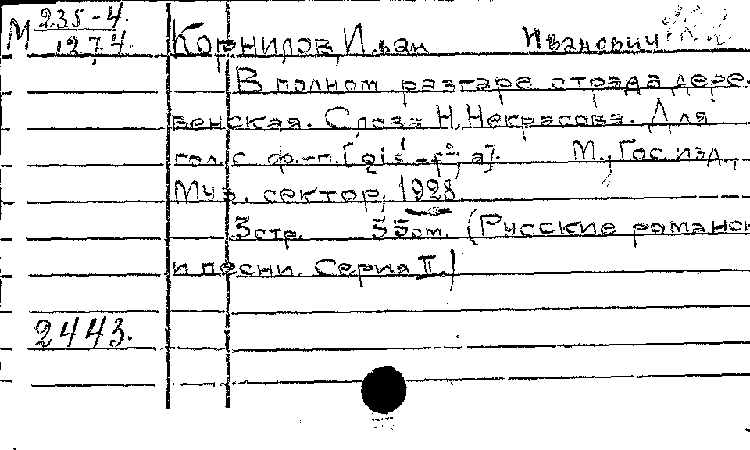 М 235-4.
1274.
Корнилов, Иван Иванович
В полном разгаре страда дере-
венская. Слова Н. Некрасова. Для
гол. с ф.-п. [gis¹-f², a]. М., Гос. изд.,
Муз. сектор, 1928
3 стр. 35 см. (Русские романсы
и песни. Серия II.)
2443.